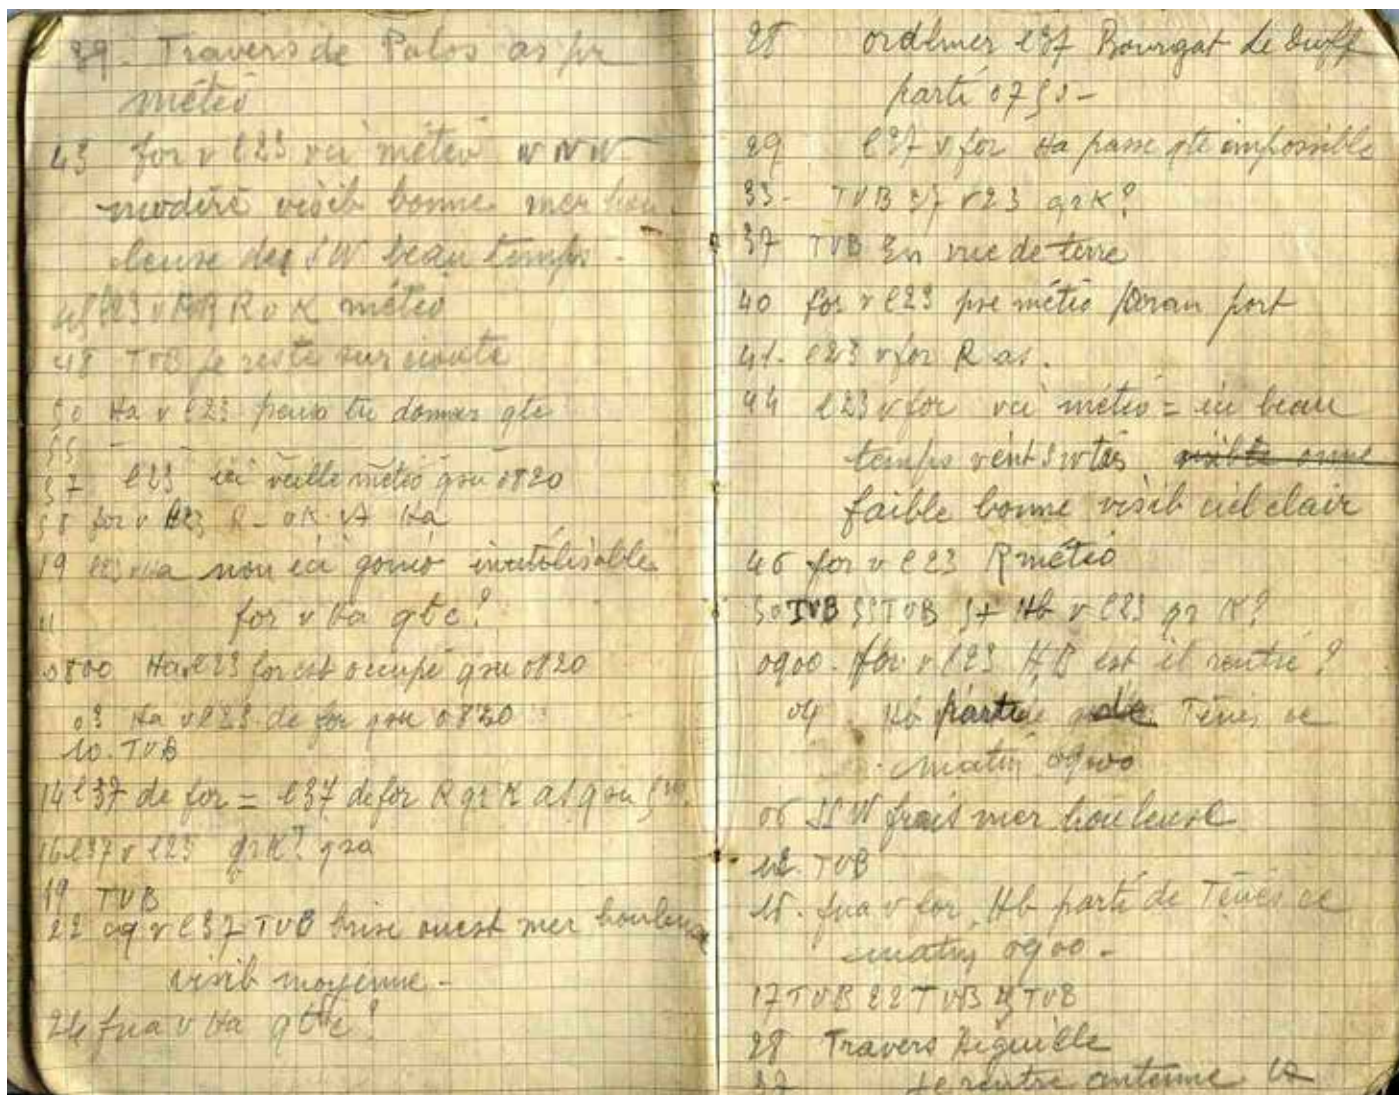 39. Travers de Palos as pr
météo
43 for v l23 vci météo NNW
modéré visib bonne mer hou
leuse du SW beau temps -
l23 v R OK météo
48 TVB je reste sur écoute
50 Ha v l23 peux tu donner gte
55
57 l23 ici veille météo qru 0820
58 for v l23 R - OK VA Ha
19 l23 v Ha non ici gonio inutilisable
11 for v Ha qtc?
0800 Ha v l23 for est occupé qru 0820
03 Ha v l23 de for qru 0820
10. TVB
14 l37 de for = l37 de for R qrK as qru
16 l37 v l23 qrK? qra
19 TVB
22 cq v l37 TVB brise ouest mer houleuse
visib moyenne -
24 fua v Ha qtc?
28 l37 Bourgat de
parti 0750 -
29 l37 v for Ha passe gte impossible
33- TVB 37 v 23 qrK?
37 TVB En vue de terre
40 for v l23 pse météo Oran port
41. l23 v for R as.
44 l23 v for vci météo = ici beau
temps vent SW
faible bonne visib ciel clair
46 for v l23 R météo
50 TVB 55 TVB 57 Hb v l23 qrK?
0900. for v l23 HB est il rentré?
04 Hb parti de Ténès ce
matin 0900
06 SSW frais mer houleuse
12. TVB
15. fua v for Hb parti de Ténès ce
matin 0900 -
17 TVB 22 TVB 25 TVB
28 Travers Aiguille
37 Je rentre antenne VA